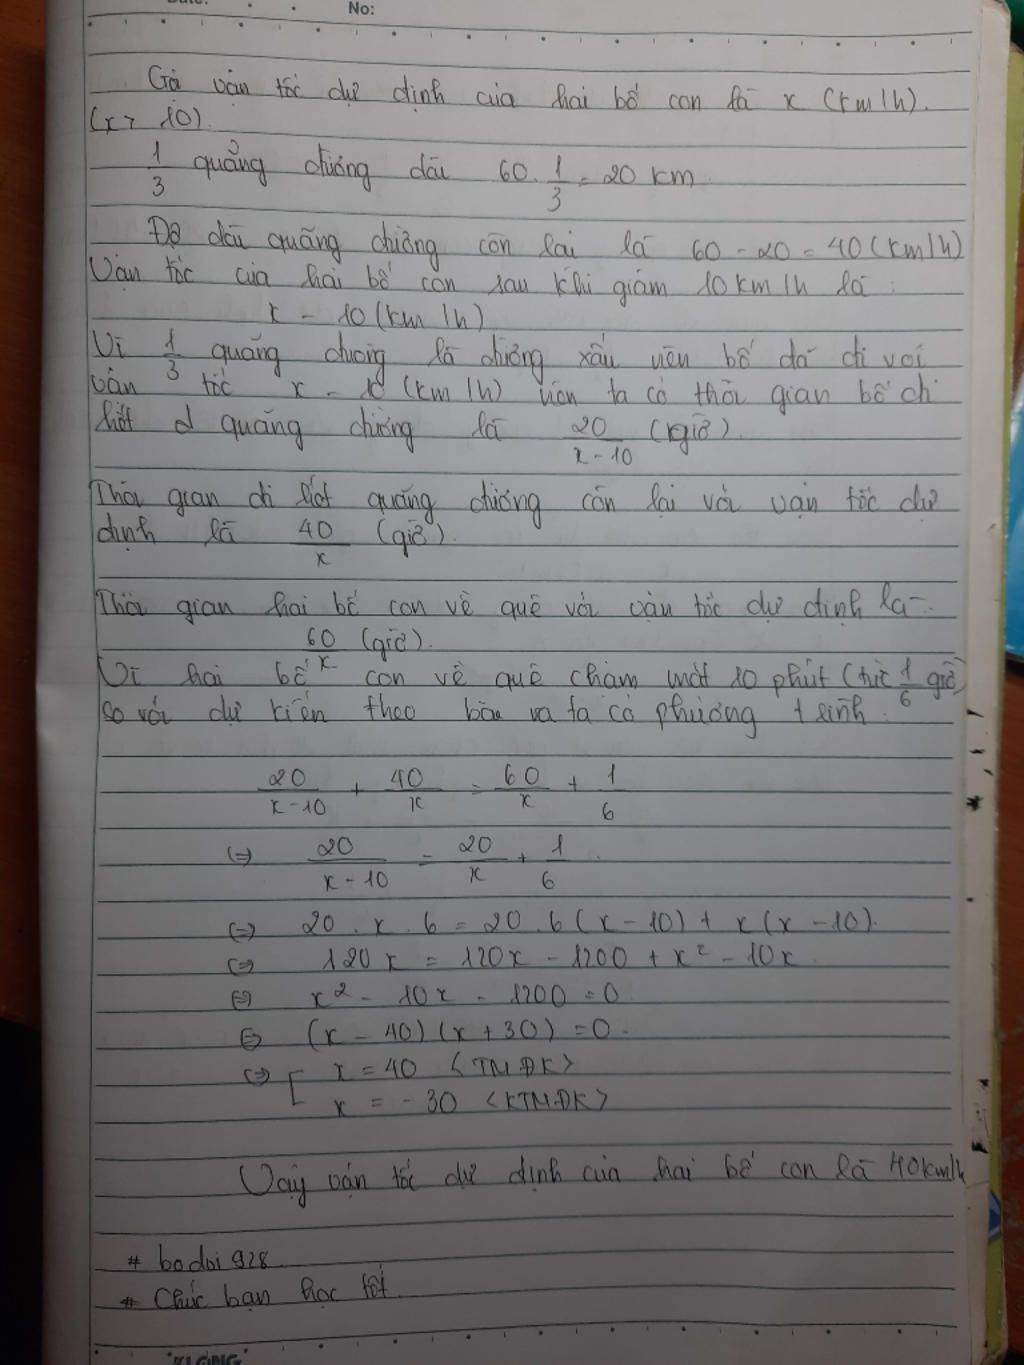 No:
Gọi vận tốc dự định của hai bố con là x (km/h).
(x > 10)
1/3 quãng đường dài 60 . 1/3 = 20 km
Độ dài quãng đường còn lại là 60 - 20 = 40 (km/h)
Vận tốc của hai bố con sau khi giảm 10 km/h là :
x - 10 (km/h)
Vì 1/3 quãng đường là đường xấu nên bố đã đi với
vận tốc x - 10 (km/h) nên ta có thời gian bố đi
hết quãng đường là 20/(x-10) (giờ)
Thời gian đi hết quãng đường còn lại với vận tốc dự
định là 40/x (giờ).
Thời gian hai bố con về quê với vận tốc dự định là
60/x (giờ).
Vì hai bố con về quê chậm mất 10 phút (tức 1/6 giờ)
so với dự kiến theo bài ra ta có phương trình :
20/(x-10) + 40/x = 60/x + 1/6
(=) 20/(x-10) = 20/x + 1/6
(=) 20 . x . 6 = 20 . 6 (x - 10) + x (x - 10)
(=) 120x = 120x - 1200 + x² - 10x
(=) x² - 10x - 1200 = 0
(=) (x - 40) (x + 30) = 0
(=) [ x = 40 <TM.ĐK>
x = -30 <KTM.ĐK>
Vậy vận tốc dự định của hai bố con là 40km/h
# bodoi 928
# Chúc bạn học tốt